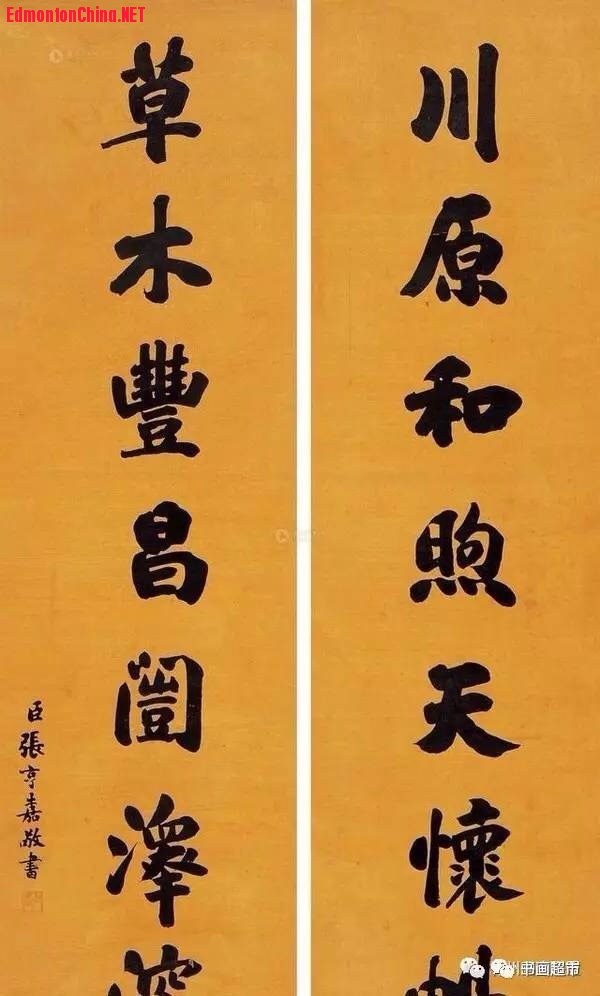 EdmontonChina.NET
川原和煦天懷
草木豐昌闓澤
臣張亨嘉敬書
画超市